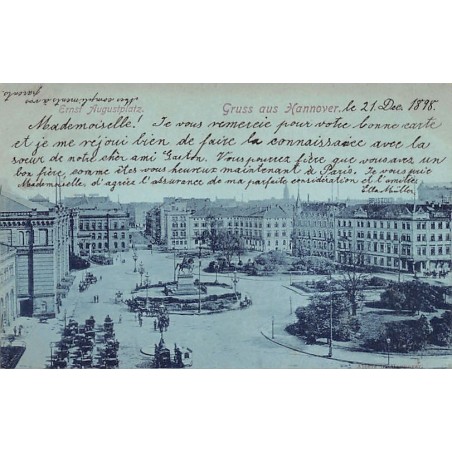 Mes compliments à vos
parents.
Ernst Augustplatz.
Gruss aus Hannover, le 21. Dec. 1898.
Mademoiselle! Je vous remercie pour votre bonne carte
et je me rejoui bien de faire la connaissance avec la
sœur de notre cher ami Gaston. Vous pouvez fière que vous avez un
bon fière, comme êtes vous heureux maintenant à Paris. Je vous prie
Mademoiselle, d'agréer l'assurance de ma parfaite considération et l'amitié
Ella Müller